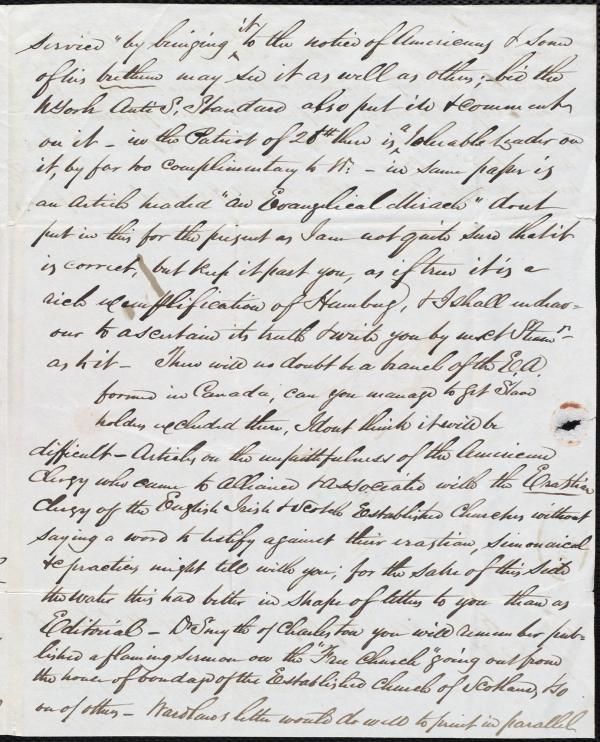 service" by bringing it to the notice of Americans & some
of his brethren may see it as well as others; bid the
N York Anti S. Standard also put it in & comment
on it – in the Patriot of 28th there is a tolerable Leader on
it, by far too complimentary to W: – in same paper is
an Article headed "an Evangelical Miracle" dont
put in this for the present as I am not quite sure that it
is correct, but keep it past you, as if true it is a
rich exemplification of Humbug, & I shall endeav=
our to ascertain its truth & write you by next Steamr
as to it – There will no doubt be a branch of the E.A.
formed in Canada; can you manage to get Slave
holders excluded there, I dont think it will be
difficult – Articles on the unfaithfulness of the American
Clergy who came to Alliance & associated with the Erastian
Clergy of the English Irish & Scotch Established Churches without
saying a word to testify against their erastian, simoniacal
&c practices might tell with you; for the sake of this side
the water this had better in shape of letters to you than as
Editorial – Dr Smyth of Charleston you will remember pub=
lished a flaming sermon on the "Free Church" going out from
the house of bondage of the Established Church of Scotland, & so
on of others – Wardlaws letter would do well to print in parallel